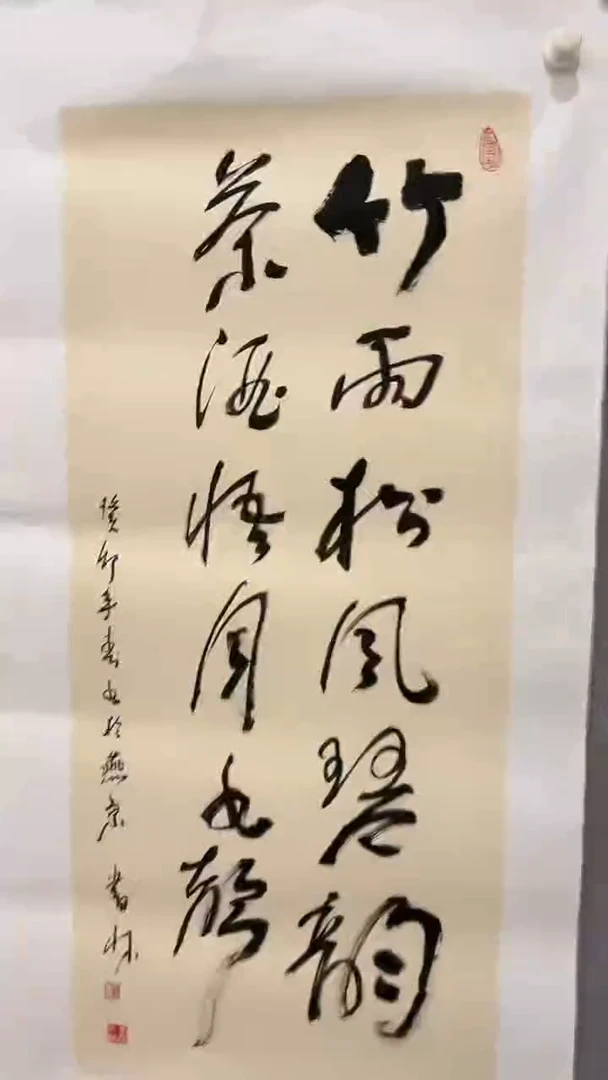 竹雨松風琴韻
茶煙梧月书聲
癸卯年春书於燕京